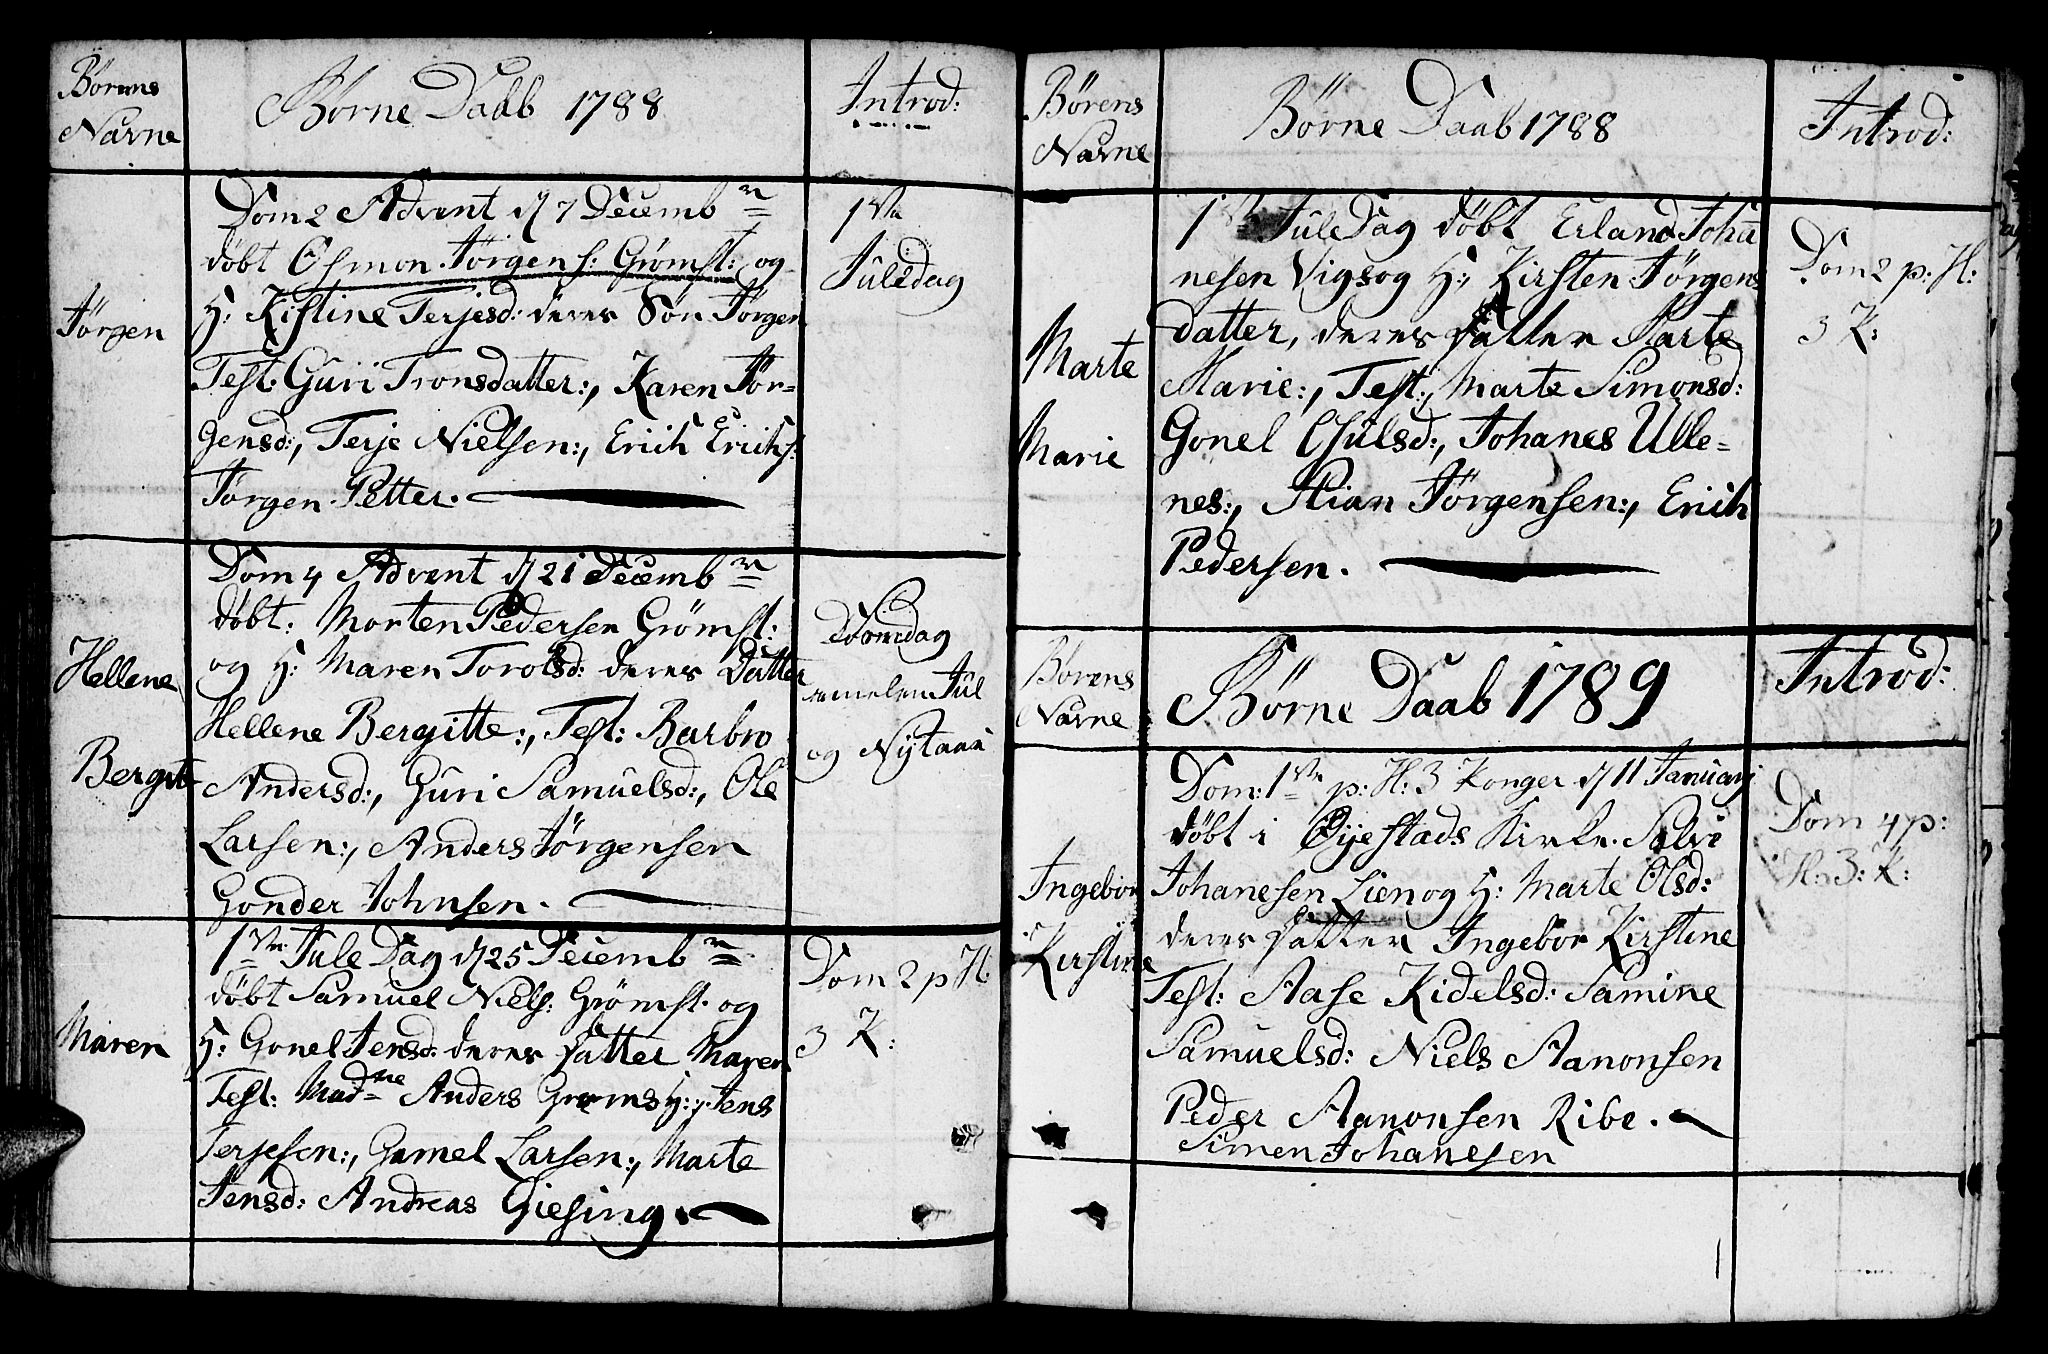 Børens
Navne
Børne Daab 1788
Introd:
Dom 2 Advent d 7 Decembr
døbt Osmon Jørgens: Grømst: og
H: Kistine Terjesd: deres Søn Jørgen
Test: Guri Tronsdatter:, Karen Jør-
gensd:, Terje Nielsen:, Erich Erichs:
Jørgen Petter.
Jørgen
1ste
Juledag
Dom 4 Advent d 21 Decembr
døbt: Morten Pedersen Grømst:
og H: Maren Torolsd: deres Datter
Hellene Bergitte:, Test: Barbro
Andersd:, Guri Samuelsd:, Ole
Larsen:, Anders Jørgensen
Gonder Johnsen.
Hellene
Bergit
Søndag
emelem Jul
og Nytaar
1ste Jule Dag d 25 Decembr
døbt Samuel Niels: Grømst. og
H: Gonel Jensd: deres Datter Maren
Test: Madme Anders Grøms H:, Jens
Terjesen:, Gamel Larsen:, Marte
Jensd: Andreas Giesing.
Maren
Dom 2 p H
3 K:
Børens
Navne
Børne Daab 1788
Introd:
1ste Jule Dag døbt Erland Joha
nesen Vigsog H: Kirsten Jørgens
datter, deres Datter Marte
Marie:, Test:, Marte Simonsd:
Gonel Chulsd:, Johanes Ulle-
nes:, Stian Jørgensen:, Erich
Pedersen.
Marte
Marie
Dom 2 p: H:
3 K:
Børens
Navne
Børne Daab 1789
Introd:
Dom: 1ste p: H: 3 Konger d 11 Januarj
døbt i Øyestads Kirke. Salve
Johanesen Lien og H: Marte Olsd:
deres Datter Ingebor Kirstine
Test: Aase Kidelsd: Samine
Samuelsd: Niels Aanonsen
Peder Aanonsen Ribe.
Simen Johanesen
Ingebor
Kirstine
Dom 4 p:
H: 3: K: